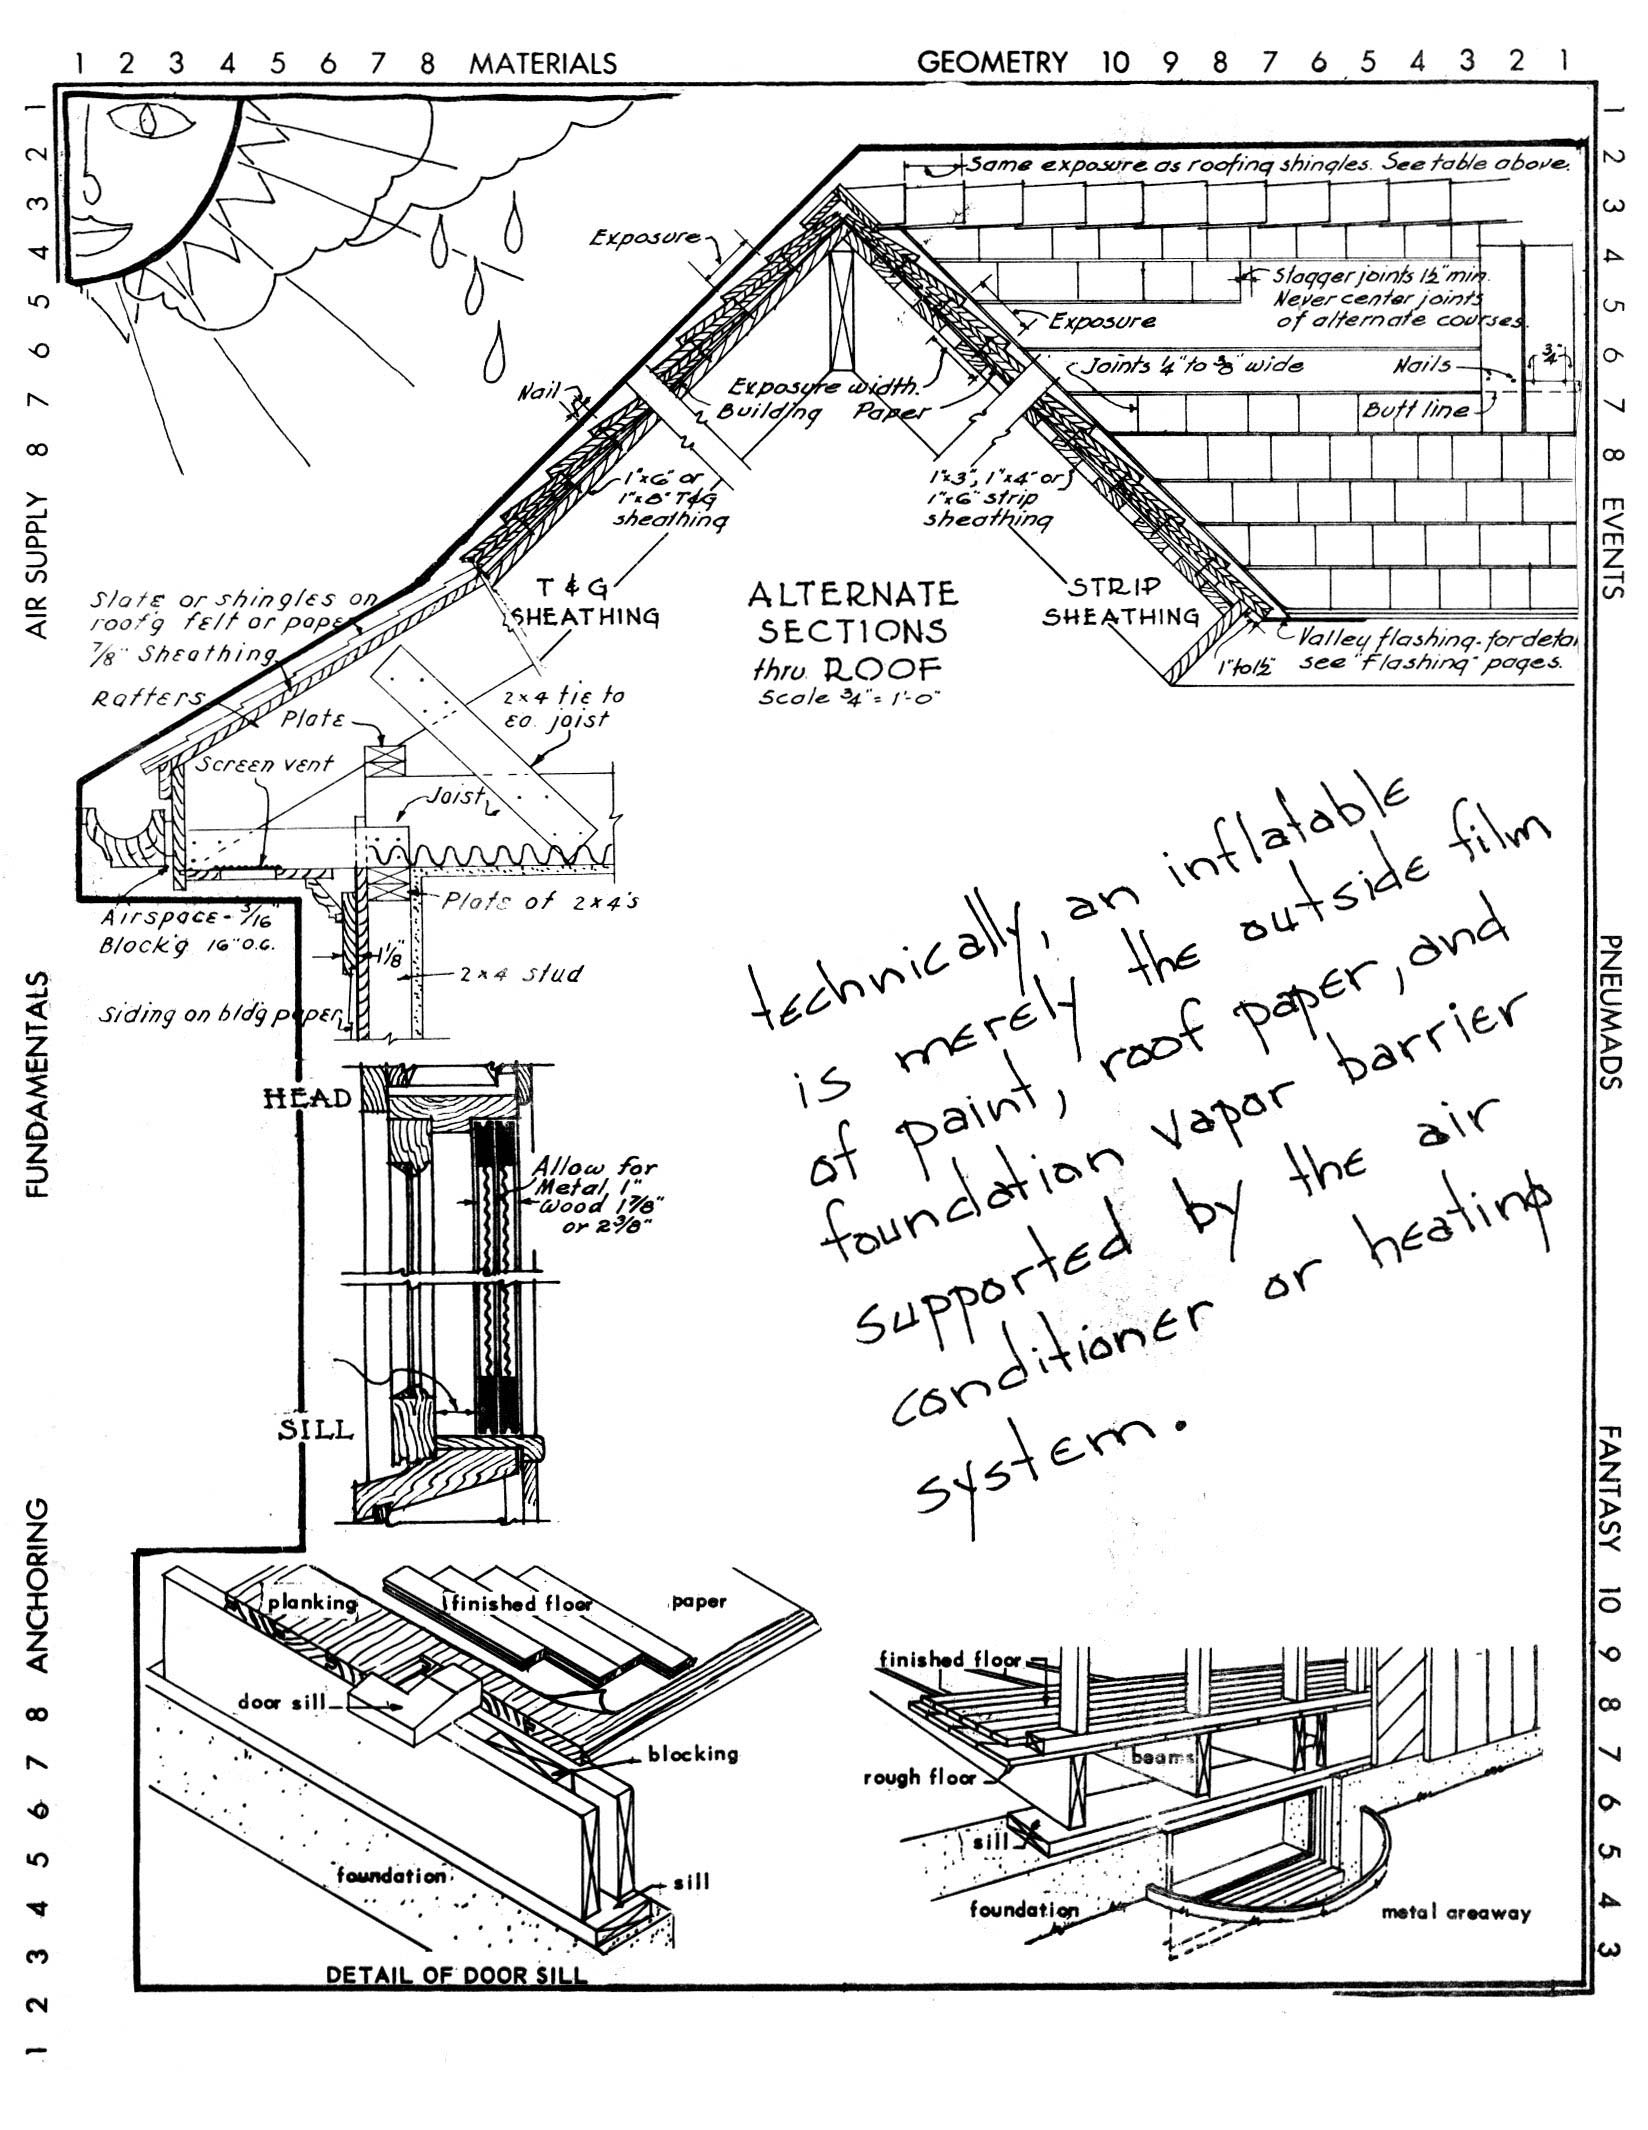 1 2 3 4 5 6 7 8 MATERIALS
GEOMETRY 10 9 8 7 6 5 4 3 2 1
1 2 3 4 5 6 7 8 AIR SUPPLY
FUNDAMENTALS
1 2 3 4 5 6 7 8 ANCHORING
1 2 3 4 5 6 7 8 EVENTS
PNEUMADS
FANTASY 10 9 8 7 6 5 4 3
Same exposure as roofing shingles. See table above.
Exposure
Stagger joints 1½" min.
Never center joints
of alternate courses.
Exposure
Joints ¼" to ⅜" wide
Nails
¾"
Butt line
Nail
Exposure width.
Building Paper
1"x6" or
1"x8" T&G
sheathing
1"x3", 1"x4" or
1"x6" strip
sheathing
T & G
SHEATHING
ALTERNATE
SECTIONS
thru ROOF
Scale ¾" = 1'-0"
STRIP
SHEATHING
Valley flashing-for detai
see "Flashing" pages.
1" to 1½"
Slate or shingles on
roof'g felt or pape
⅞" Sheathing
Rafters
Plate
Screen vent
2x4 tie to
ea. joist
Joist
Airspace-3/16"
Block'g 16" O.C.
Plate of 2x4's
1⅛"
2x4 stud
Siding on bldg paper
HEAD
Allow for
Metal 1"
Wood 1⅞"
or 2⅜"
SILL
technically, an inflatable
is merely the outside film
of paint, roof paper, and
foundation vapor barrier
supported by the air
conditioner or heating
system.
planking
finished floor
paper
door sill
blocking
foundation
sill
DETAIL OF DOOR SILL
finished floor
beams
rough floor
sill
foundation
metal areaway